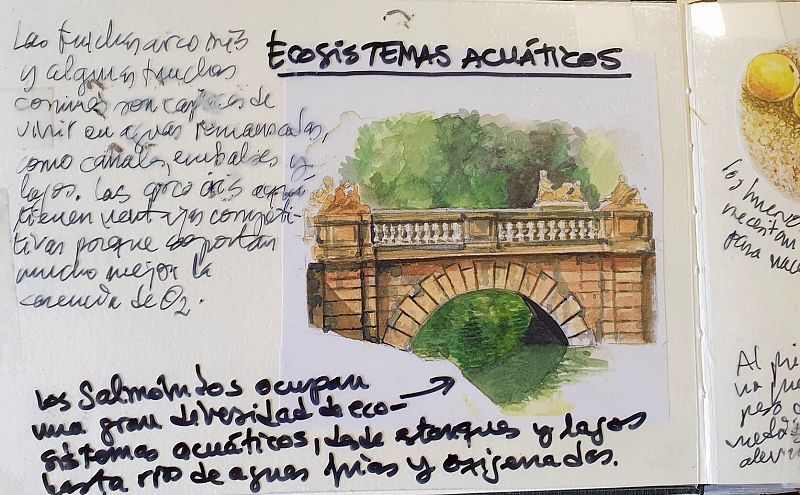 ECOSISTEMAS ACUÁTICOS
Las truchas arco iris
y algunas truchas
comunes son capaces de
vivir en aguas remansadas,
como canales, embalses y
lagos. Las arco iris aquí
tienen ventajas competi-
tivas porque soportan
mucho mejor la
carencia de O2.
Los Salmónidos ocupan
una gran diversidad de eco-
sistemas acuáticos, desde estanques y lagos
hasta ríos de aguas frías y oxigenadas.
los huevos
necesitan
para nace
Al pri
peso